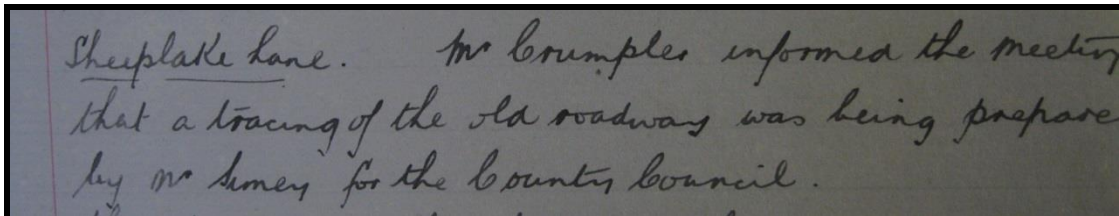 Sheeplake Lane. Mr Crumpler informed the meetin
that a tracing of the old roadway was being prepare
by Mr Simey for the County Council.